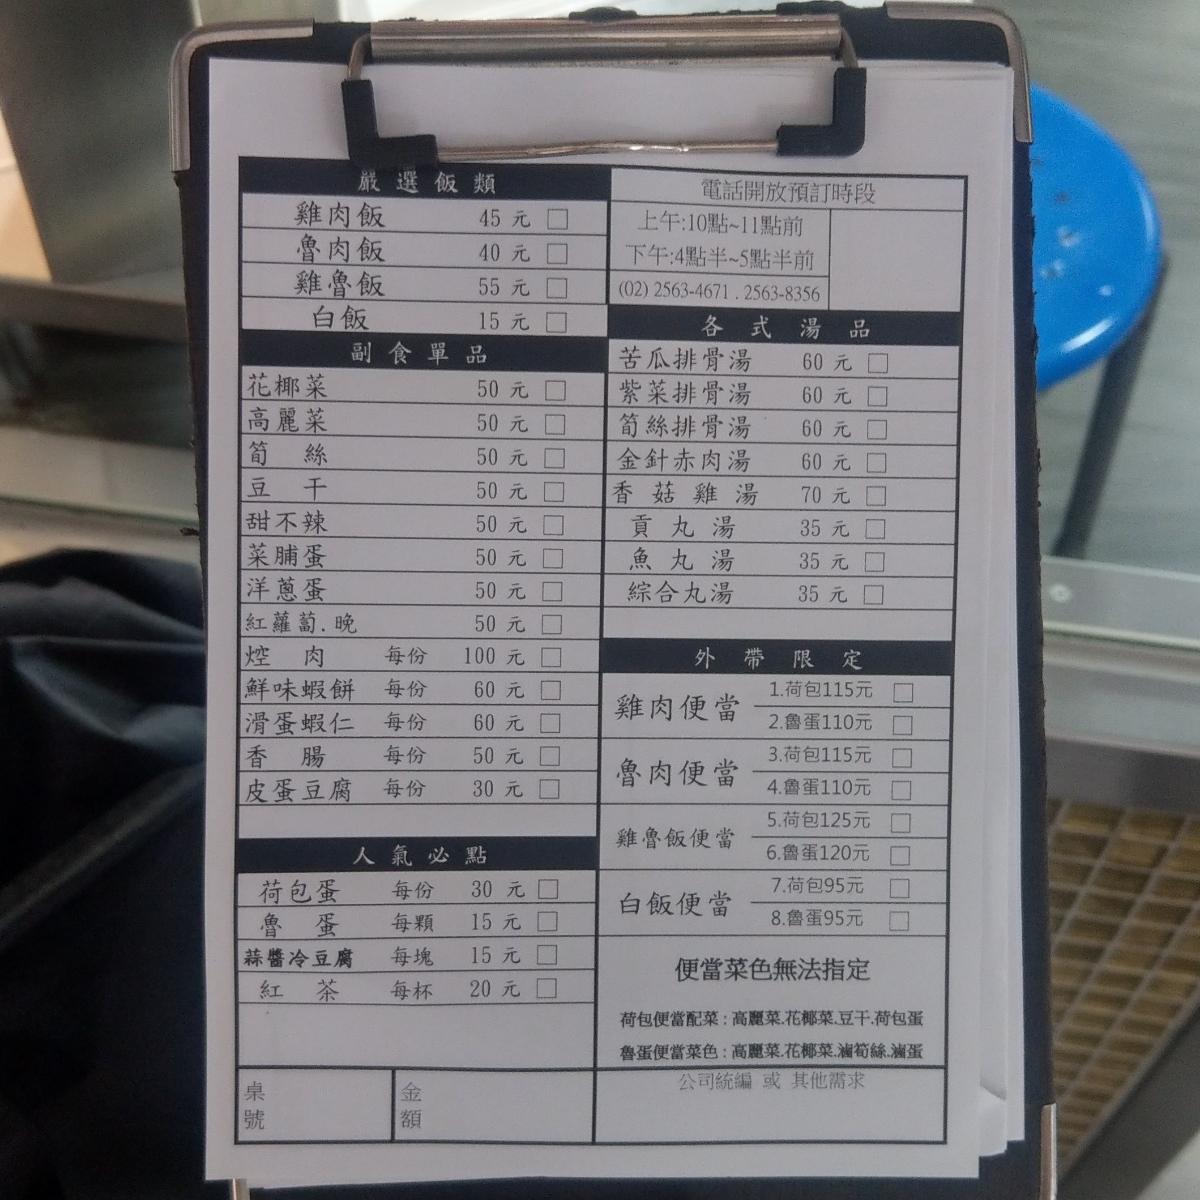 嚴選飯類
雞肉飯 45 元 □
魯肉飯 40 元 □
雞魯飯 55 元 □
白飯 15 元 □
副食單品
花椰菜 50 元 □
高麗菜 50 元 □
筍 絲 50 元 □
豆 干 50 元 □
甜不辣 50 元 □
菜脯蛋 50 元 □
洋蔥蛋 50 元 □
紅蘿蔔.晚 50 元 □
焢 肉 每份 100 元 □
鮮味蝦餅 每份 60 元 □
滑蛋蝦仁 每份 60 元 □
香 腸 每份 50 元 □
皮蛋豆腐 每份 30 元 □
人氣必點
荷包蛋 每份 30 元 □
魯 蛋 每顆 15 元 □
蒜醬冷豆腐 每塊 15 元 □
紅 茶 每杯 20 元 □
桌號
金額
電話開放預訂時段
上午:10點~11點前
下午:4點半~5點半前
(02) 2563-4671 . 2563-8356
各式湯品
苦瓜排骨湯 60 元 □
紫菜排骨湯 60 元 □
筍絲排骨湯 60 元 □
金針赤肉湯 60 元 □
香菇雞湯 70 元 □
貢丸湯 35 元 □
魚丸湯 35 元 □
綜合丸湯 35 元 □
外帶限定
雞肉便當
1.荷包115元 □
2.魯蛋110元 □
魯肉便當
3.荷包115元 □
4.魯蛋110元 □
雞魯飯便當
5.荷包125元 □
6.魯蛋120元 □
白飯便當
7.荷包95元 □
8.魯蛋95元 □
便當菜色無法指定
荷包便當配菜 : 高麗菜.花椰菜.豆干.荷包蛋
魯蛋便當菜色 : 高麗菜.花椰菜.滷筍絲.滷蛋
公司統編 或 其他需求